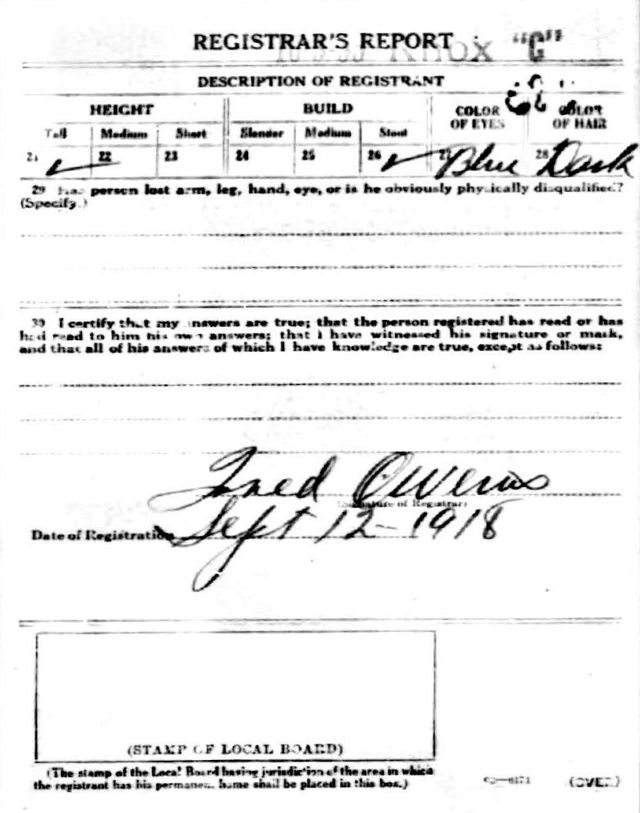 REGISTRAR'S REPORT
KNOX "G"
DESCRIPTION OF REGISTRANT
HEIGHT BUILD COLOR OF EYES COLOR OF HAIR
Tall Medium Short Slender Medium Stout
21 ✓ 22 23 24 25 26 ✓ 27 Blue 28 Dark
29 Has person lost arm, leg, hand, eye, or is he obviously physically disqualified?
(Specify.)
30 I certify that my answers are true; that the person registered has read or has
had read to him his own answers; that I have witnessed his signature or mark,
and that all of his answers of which I have knowledge are true, except as follows:
Fred Owens
(Signature of Registrar)
Date of Registration Sept 12-1918
(STAMP OF LOCAL BOARD)
(The stamp of the Local Board having jurisdiction of the area in which
the registrant has his permanent home shall be placed in this box.)
(OVER)